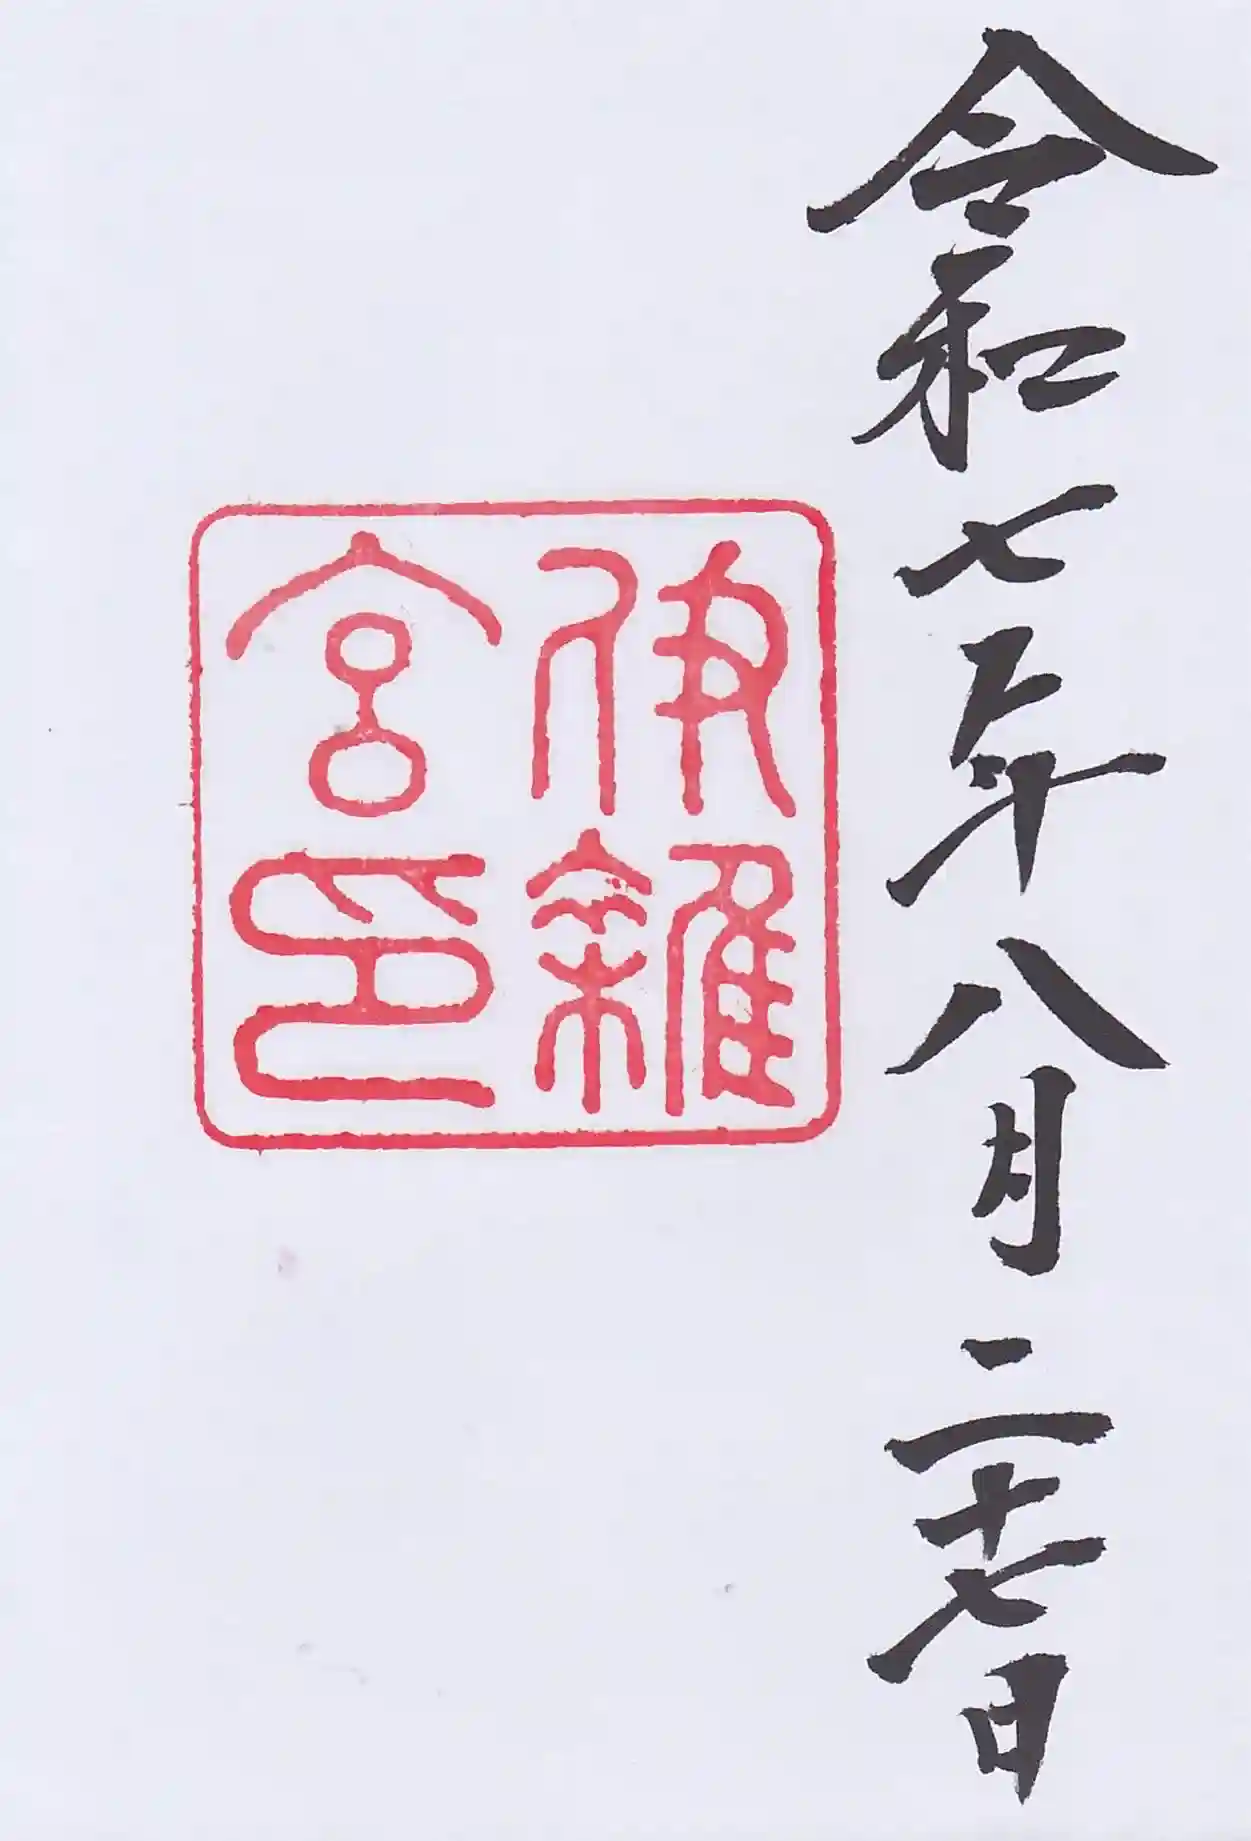 令和七年八月二十七日
伊雜
宮印